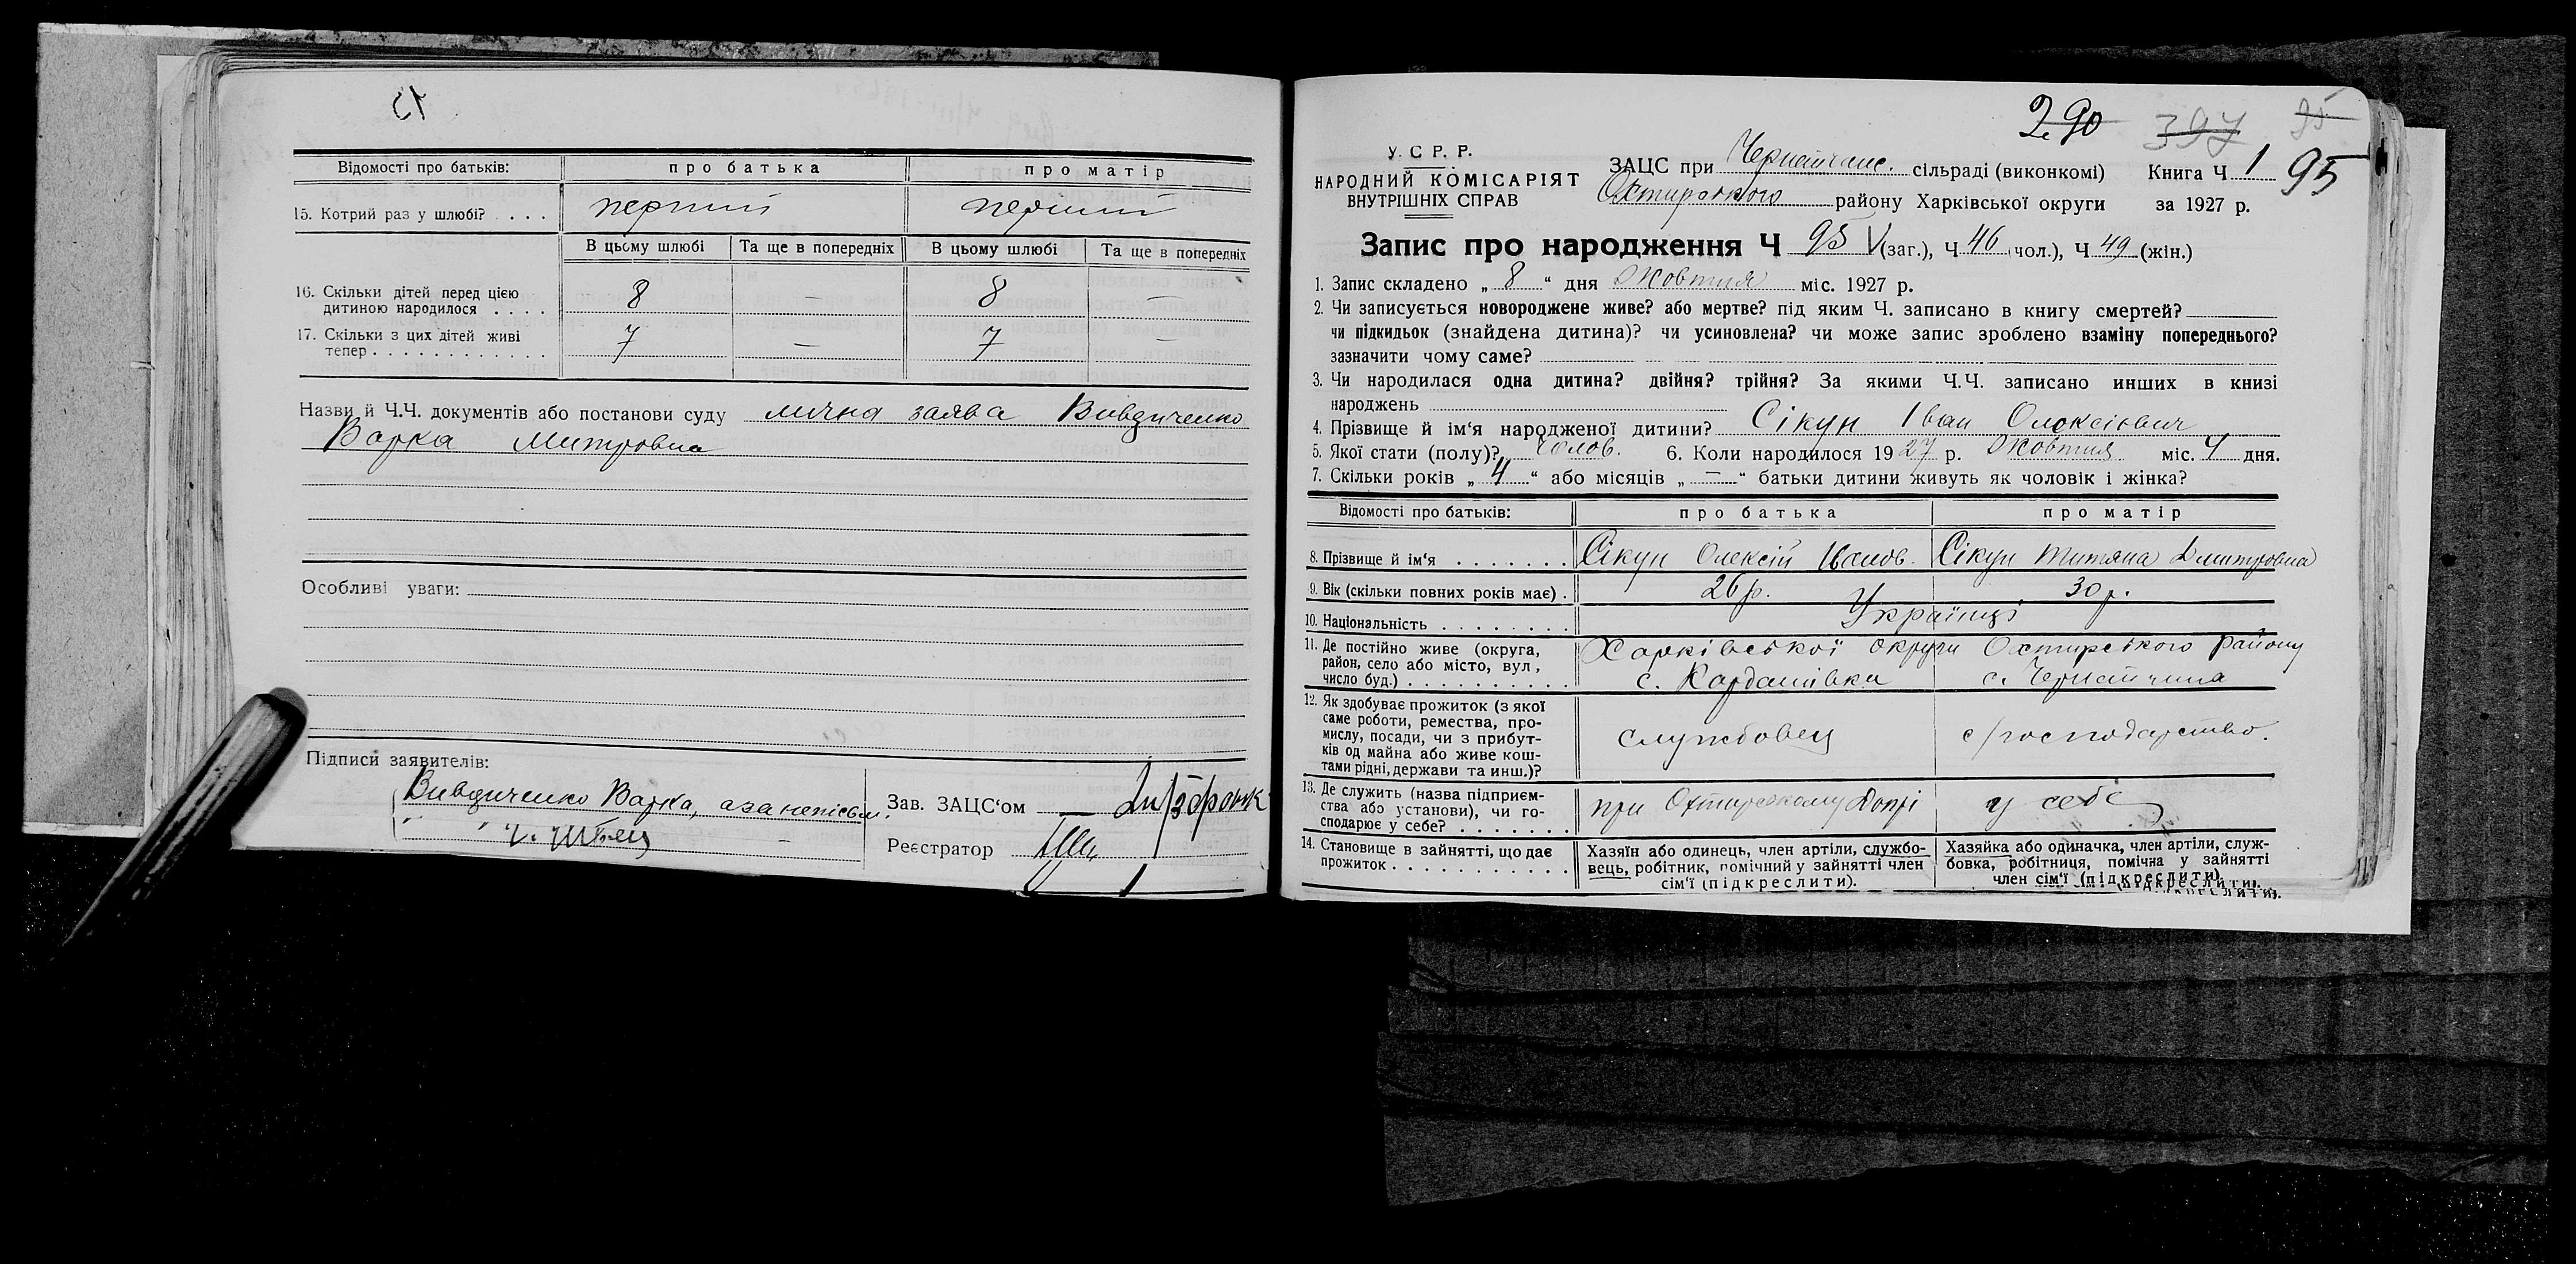 15. Котрий раз у шлюбі? . . . .
Відомості про батьків: про батька про матір
перший перший
В цьому шлюбі Та ще в попередніх В цьому шлюбі Та ще в попередніх
16. Скільки дітей перед цією
дитиною народилося . . . . 8 — 8 —
17. Скільки з цих дітей живі
тепер . . . . . . . . . . . . . 7 — 7 —
Назви й Ч.Ч. документів або постанови суду лична заява Вивдиченко
Варка Митровна
Особливі уваги:
Підписи заявителів:
Вивдиченко Варка, а за неписьм.
Зав. ЗАЦС'ом
Реєстратор
290 397 95
У. С. Р. Р.
НАРОДНИЙ КОМІСАРІЯТ
ВНУТРІШНІХ СПРАВ
ЗАЦС при Чернетчанс. сільраді (виконкомі) Книга Ч 1 95
Охтирського району Харківської округи за 1927 р.
Запис про народження Ч 95 V (заг.), Ч 46 (чол.), Ч 49 (жін.)
1. Запис складено „ 8 “ дня Жовтня міс. 1927 р.
2. Чи записується новороджене живе? або мертве? під яким Ч. записано в книгу смертей?
чи підкидьок (знайдена дитина)? чи усиновлена? чи може запис зроблено взаміну попереднього?
зазначити чому саме?
3. Чи народилася одна дитина? двійня? трійня? За якими Ч.Ч. записано инших в книзі
народжень
4. Прізвище й ім'я народженої дитини? Сікун Іван Олексієвич
5. Якої стати (полу)? Чолов. 6. Коли народилося 1927 р. Жовтня міс. 4 дня.
7. Скільки років „ 4 “ або місяців „ — “ батьки дитини живуть як чоловік і жінка?
Відомості про батьків: про батька про матір
8. Прізвище й ім'я . . . . . . . Сікун Олексій Іванов. Сікун Титяна Дмитровна
9. Вік (скільки повних років має) . 26 р. 30 р.
10. Національність . . . . . . . . Українці
11. Де постійно живе (округа,
район, село або місто, вул,
число буд.) . . . . . . . . . .
Харківської округи Охтирського району
с. Кардашівка с. Чернетчина
12. Як здобуває прожиток (з якої
саме роботи, ремества, про-
мислу, посади, чи з прибут-
ків од майна або живе кош-
тами рідні, держави та инш.)?
службовец с/господарство.
13. Де служить (назва підприєм-
ства або установи), чи го-
сподарює у себе? . . . . . . .
при Охтирському Допрі у себе
14. Становище в зайнятті, що дає
прожиток . . . . . . . . . . . .
Хазяїн або одинець, член артіли, службо-
вець, робітник, помічний у зайнятті член
сім'ї (підкреслити).
Хазяйка або одиначка, член артіли, служ-
бовка, робітниця, помічна у зайнятті
член сім'ї (підкреслити).